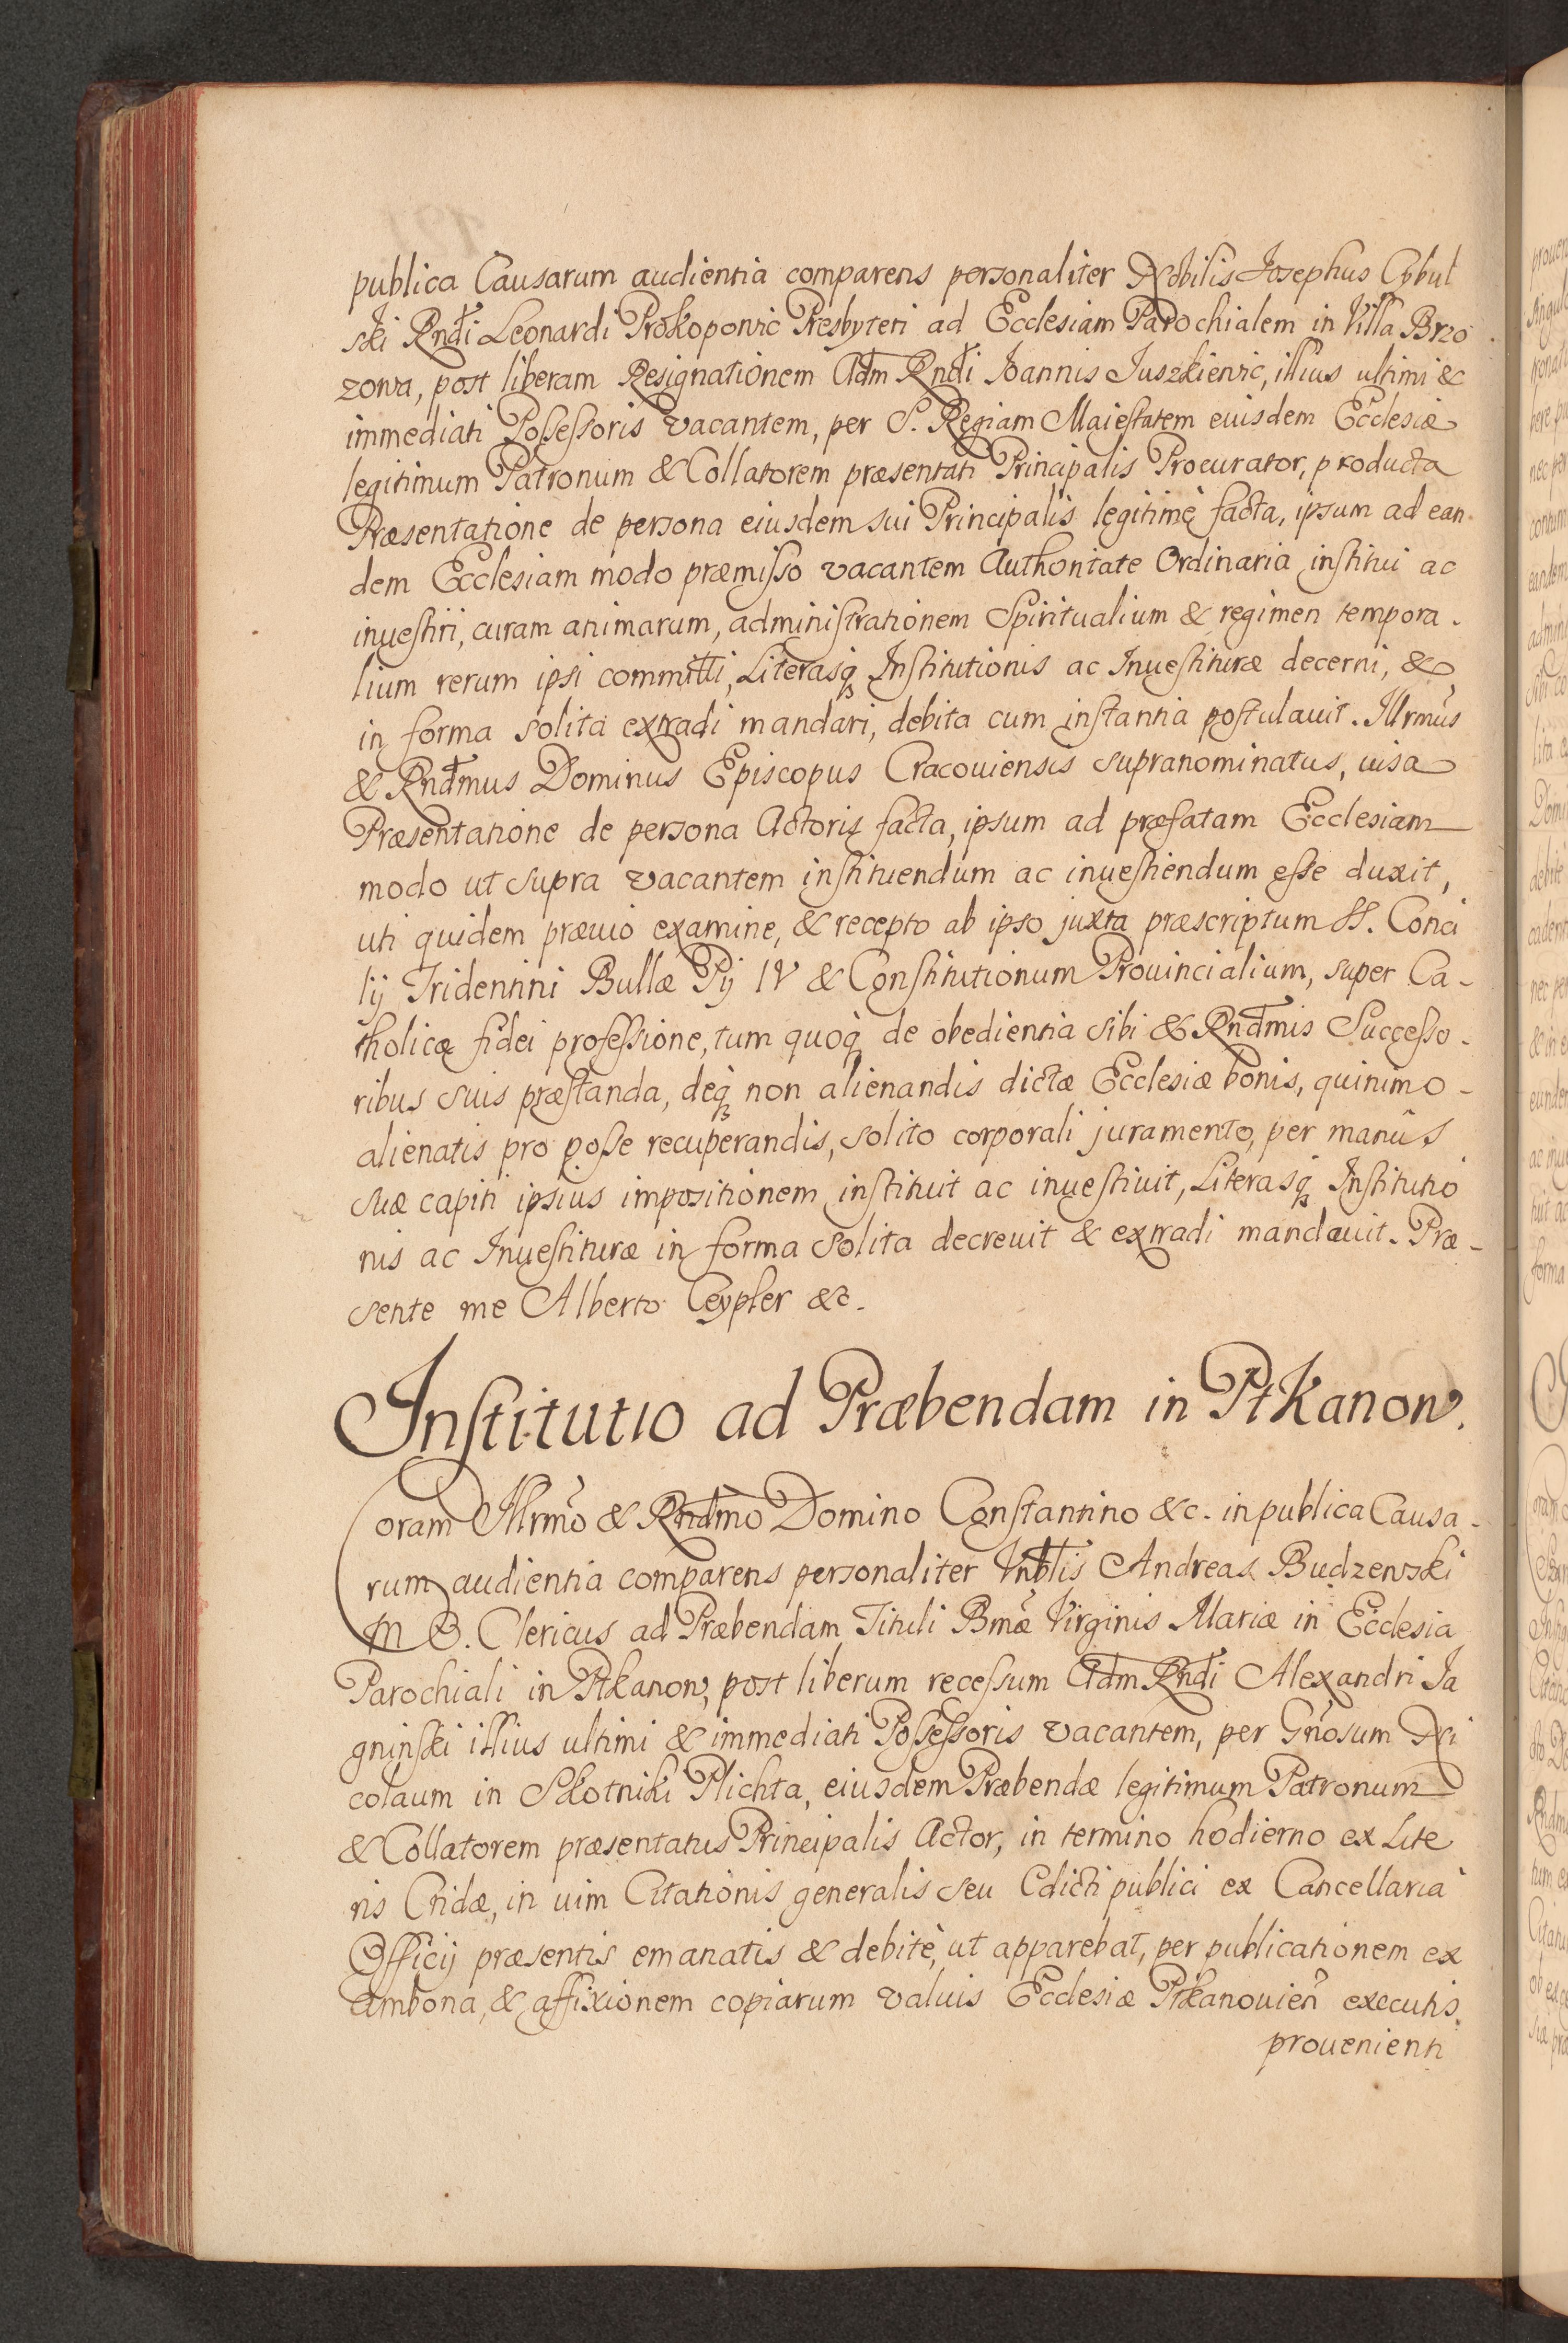 publica Causarum audientia comparens personaliter Nobilis Josephus Cybul
ski Rndi Leonardi Prokopowic Presbyteri ad Ecclesiam Parochialem in Villa Brzo
zowa, post liberam Resignationem Adm Rndi Joannis Juszkiewic, illius ultimi &
immediati Possessoris vacantem, per S. Regiam Maiestatem euisdem Ecclesiæ
legitimum Patronum & Collatorem præsentati Principalis Procurator, producta
Præsentatione de persona eiusdem sui Principalis legitimè facta, ipsum ad ean
dem Ecclesiam modo præmisso vacantem Authoritate Ordinaria institui ac
inuestiri, curam animarum, administrationem Spiritualium & regimen tempora-
lium rerum ipsi committi, Literasq Institutionis ac Inuestituræ decerni, &
in forma solita extradi mandari, debita cum instantia postulauit. Illrmus
& Rndmus Dominus Episcopus Cracouiensis supranominatus, uisa
Præsentatione de persona Actoris facta, ipsum ad præfatam Ecclesiam
modo ut supra vacantem instituendum ac inuestiendum esse duxit,
uti quidem præuio examine, & recepto ab ipso juxta præscriptum SS. Conci
lij Tridentini Bullæ Pij IV & Constitutionum Prouincialium, super Ca-
tholicæ fidei professione, tum quoq de obedientia sibi & Rndmis Successo-
ribus suis præstanda, deq non alienandis dictæ Ecclesiæ bonis, quinimo-
alienatis pro posse recuperandis, solito corporali juramento, per manûs
suæ capiti ipsius impositionem instituit ac inuestiuit, Literasq Institutio
nis ac Inuestituræ in forma solita decreuit & extradi mandauit. Præ-
sente me Alberto Ceypler &c.
Institutio ad Præbendam in Ptkanow.
Coram Illrmo & Rndmo Domino Constantino &c. in publica Causa-
rum audientia comparens personaliter Vnblis Andreas Budzewski
M O. Clericus ad Præbendam Tituli Bmæ Virginis Mariæ in Ecclesia
Parochiali in Ptkanow, post liberum recessum Adm Rndi Alexandri Ja
gninski illius ultimi & immediati Possessoris vacantem, per Gnosum Ni
colaum in Skotniki Plichta, eiusdem Præbendæ legitimum Patronum
& Collatorem præsentatus Principalis Actor, in termino hodierno ex Lite
ris Cridæ, in uim Citationis generalis seu Edicti publici ex Cancellaria
Officij præsentis emanatis & debitè, ut apparebat, per publicationem ex
Ambona, & affixionem copiarum valuis Ecclesiæ Ptkanouien executis,
prouenienti